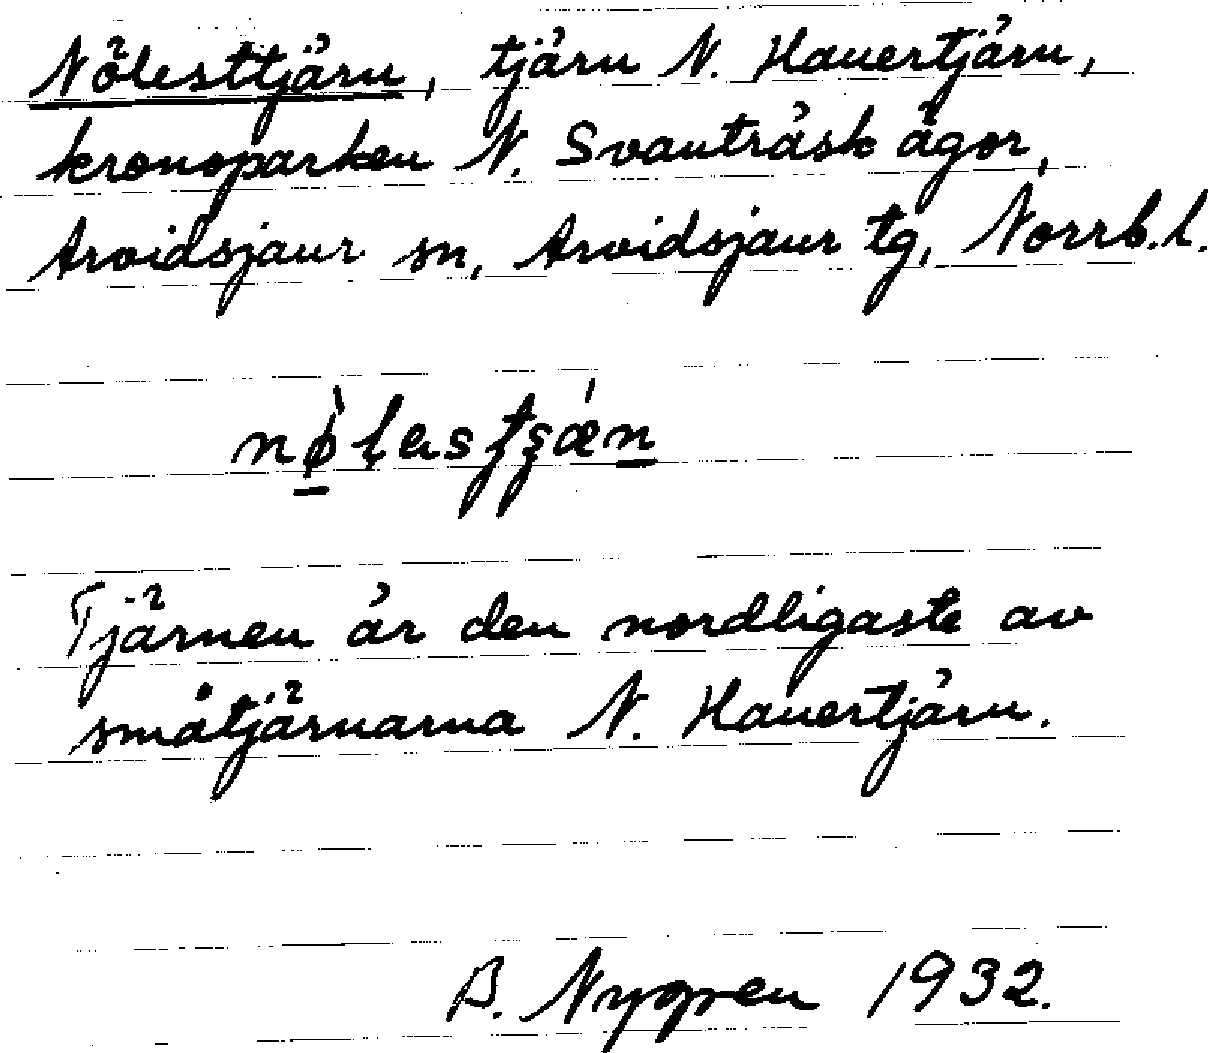 Nölesttjärn, tjärn N. Hauertjärn,
kronoparken N. Svanträsk ägor,
Arvidsjaur sn, Arvidsjaur tg, Norrb.l.
Tjärnen är den nordligaste av
småtjärnarna N. Hauertjärn.
B. Nygren 1932.